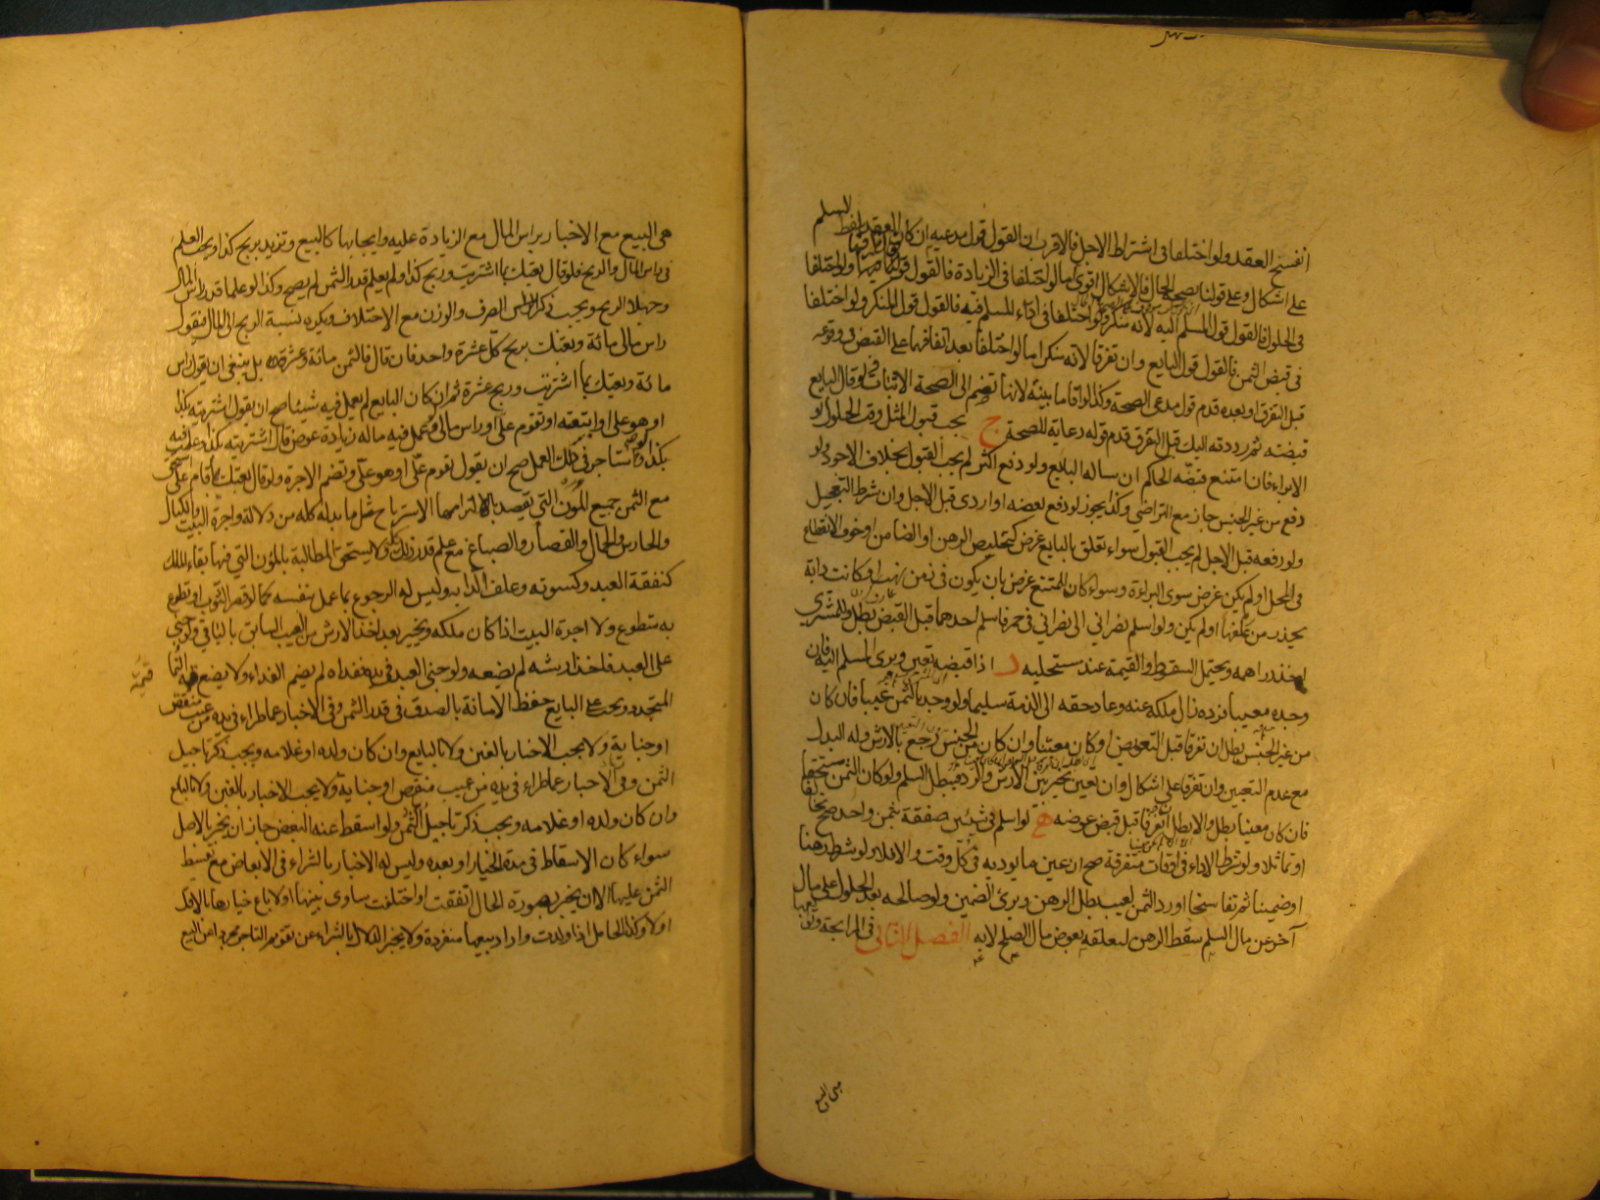 انفسخ العقد ولو اختلفا في اشتراط الاجل فالاقرب ان القول قول مدعيه ان كان العقد بلفظ السلم
على اشكال وعلى قولنا بصحة الحال فالاشكال اقوى اما لو اختلفا في الزيادة فالقول قول نافيها ولو اختلفا
في الحلول فالقول قول المسلم اليه لانه منكر ولو اختلفا في اداء المسلم فيه فالقول قول المنكر ولو اختلفا
في قبض الثمن فالقول قول البايع وان تفرقا لانه منكر اما لو اختلفا بعد اتفاقهما على القبض في وقوعه
قبل التفرق او بعده قدم قول مدعى الصحة وكذا لو اقاما بينة لانها تضم الى الصحة الاثبات ولو قال البايع
قبضته ثم رددته اليك قبل التفرق قدم قوله رعاية للصحة ج يجب قبول المثل وقت الحلول او
الابراء فان امتنع قبضه الحاكم ان ساله البايع ولو دفع اكثر لم يجب القبول بخلاف الاجود ولو
دفع من غير الجنس جاز مع التراضي وكذا يجوز لو دفع بعضه او اردى قبل الاجل وان شرط التعجيل
ولو دفعه قبل الاجل لم يجب القبول سواء تعلق بالبايع غرض كتخليص الرهن او الضامن او خوف الانقطاع
في المحل او لم يكن غرض سوى البراءة وسواء كان للممتنع غرض بان يكون في زمن نهب او كانت دابة
يحذر من علفها او لم يكن ولو اسلم نصراني الى نصراني في خمر فاسلم احدهما قبل القبض بطل وللمشتري
اخذ دراهمه ويحتمل السقوط والقيمة عند مستحليه د اذا قبضه تعين وبرى المسلم اليه فان
وجده معيبا فرده زال ملكه عنه وعاد حقه الى الذمة سليما ولو وجد بالثمن عيبا فان كان
من غير الجنس بطل ان تفرقا قبل التعويض او كان معينا وان كان من الجنس رجع بالارش وله البدل
مع عدم التعيين وان تفرقا على اشكال وان تعين تخير بين الارش والرد فيبطل السلم ولو كان الثمن مستحقا
فان كان معينا بطل والا بطل ان تفرقا قبل قبض عوضه ه لو اسلم في شيئين صفقة بثمن واحد صح تخالفا
او تماثلا ولو شرط الاداء في اوقات متفرقة صح ان عين ما يوديه في كل وقت والا فلا ولو شرط رهنا
او ضمينا ثم تفاسخا او رد الثمن لعيب بطل الرهن وبرئ الضمين ولو صالحه بعد الحلول على مال
آخر عن مال السلم سقط الرهن لتعلقه بعوض مال الصلح لا به الفصل الثاني في المرابحة وتوابعها
من البيع
هى البيع مع الاخبار براس المال مع الزيادة عليه وايجابها كالبيع وتزيد بربح كذا ويجب العلم
في راس المال والربح فلو قال بعتك بما اشتريت وربح كذا ولم يعلم قدر الثمن لم يصح وكذا لو علما قدر راس المال
وجهلا الربح ويجب ذكر الصرف والوزن مع الاختلاف ويكره نسبة الربح الى المال فيقول
راس مالى مائة وبعتك بربح كل عشرة واحد فان قال فالثمن مائة وعشرة بل ينبغى ان يقول راس
مائة وبعتك بما اشتريت وربح عشرة ثم ان كان البايع لم يعمل فيه شيئا صح ان يقول اشتريته بكذا
او هو على او ابتعته او تقوم على او راس مالى ولو عمل فيه ماله زيادة عوض قال اشتريته بكذا وعملت فيه
بكذا ولو استاجر في ذلك العمل صح ان يقول تقوم على او هو على وتضم الاجرة ولو قال بعتك بما قام على استحق
مع الثمن جميع المؤن التى يقصد بالتزامها الاسترباح مثل ما بذله من دلالة واجرة البيت والكيال
والحارس والحمال والقصار والصباغ مع علم قدر ذلك كله ولا يستحق المطالبة بالمؤن التى فيها بقاء الملك
كنفقة العبد وكسوته وعلف الدابة وليس له الرجوع بما عمل بنفسه كما لو قصر الثوب او تطوع
به متطوع ولا اجرة البيت اذا كان ملكه ويخبر بعد اخذ الارش من العيب السابق بالباقي ولو جنى
على العبد فاخذ ارشه لم يضعه ولو جنى العبد ففداه لم يضم الفداء ولا يضع قيمة النماء
قيمة
المتجدد ويجب على البايع حفظ الامانة بالصدق في قدر الثمن وفي الاخبار عما طراء في يده من عيب منقص
او جناية ولا يجب الاخبار بالغبن ولا بالبايع وان كان ولده او غلامه ويجب ذكر تاجيل
الثمن وفي الاخبار عما طراء في يده من عيب منقص او جناية ولا يجب الاخبار بالغبن ولا بالبايع
وان كان ولده او غلامه ويجب ذكر تاجيل الثمن ولو اسقط عنه البعض جاز ان يخبر بالاصل
سواء كان الاسقاط في مدة الخيار او بعده وليس له الاخبار بالشراء في الابعاض مع تقسيط
الثمن عليها الا ان يخبر بصورة الحال اتفقت او اختلفت ساوى بينها او لا باع خيارها بالاقل
او لا وكذا الحامل اذا ولدت واراد بيعها منفردة ولا يخبر الدلال بالشراء عن تقويم التاجر مجردا عن البيع